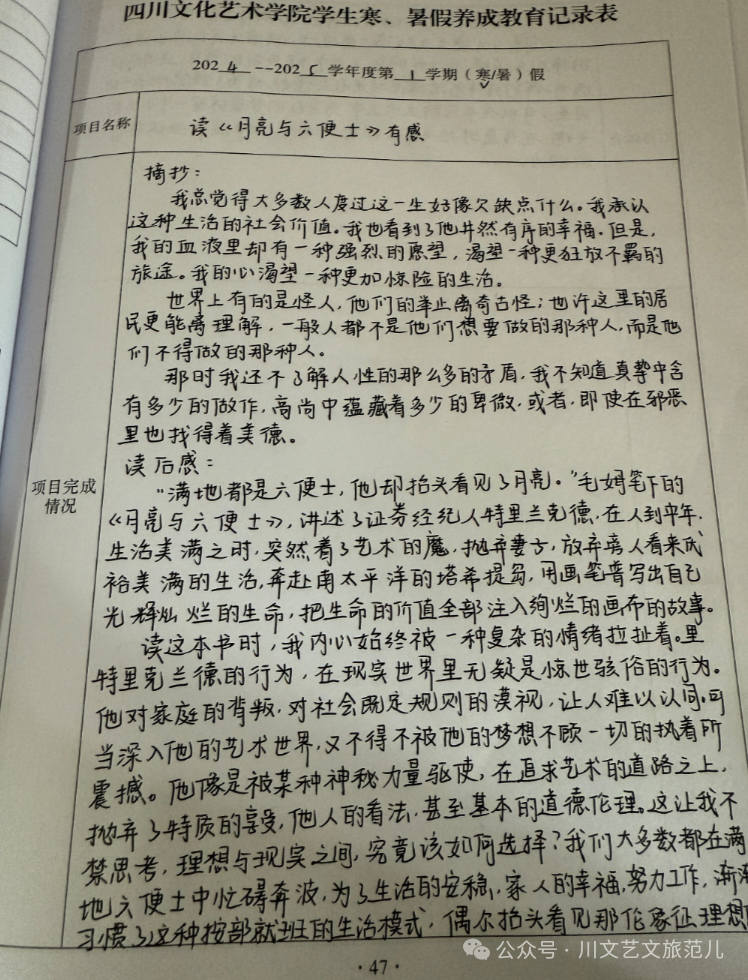 四川文化艺术学院学生寒、暑假养成教育记录表
2024--2025学年度第1学期（寒/暑）假
项目名称
读《月亮与六便士》有感
摘抄：
我总觉得大多数人度过这一生好像欠缺点什么。我承认
这种生活的社会价值。我也看到了他井然有序的幸福。但是，
我的血液里却有一种强烈的愿望，渴望一种更狂放不羁的
旅途。我的心渴望一种更加惊险的生活。
世界上有的是怪人，他们的举止离奇古怪；也许这里的居
民更能离理解，一般人都不是他们想要做的那种人，而是他
们不得做的那种人。
那时我还不了解人性的那么多的矛盾，我不知道真挚中含
有多少的做作，高尚中蕴藏着多少的卑微，或者，即使在邪恶
里也找得着美德。
读后感：
项目完成
情况
“满地都是六便士，他却抬头看见了月亮。”毛姆笔下的
《月亮与六便士》，讲述了证券经纪人特里兰克德，在人到中年，
生活美满之时，突然着了艺术的魔，抛弃妻子，放弃旁人看来
裕美满的生活，奔赴南太平洋的塔希提岛，用画笔普写出自己
光辉灿烂的生命，把生命的价值全部注入绚烂的画布的故事。
读这本书时，我内心始终被一种复杂的情绪拉扯着。里
特里克兰德的行为，在现实世界里无疑是惊世骇俗的行为。
他对家庭的背叛，对社会既定规则的漠视，让人难以认同。可
当深入他的艺术世界，又不得不被他的梦想不顾一切的执着所
震撼。他像是被某种神秘力量驱使，在追求艺术的道路之上，
抛弃了特质的享受，他人的看法，甚至基本的道德伦理。这让我不
禁思考，理想与现实之间，究竟该如何选择？我们大多数都在满
地六便士中忙碍奔波，为了生活的安稳，家人的幸福，努力工作，渐渐
习惯了这种按部就班的生活模式，偶尔抬头看见那伦象征理想
·47·
公众号·川文艺文旅范儿